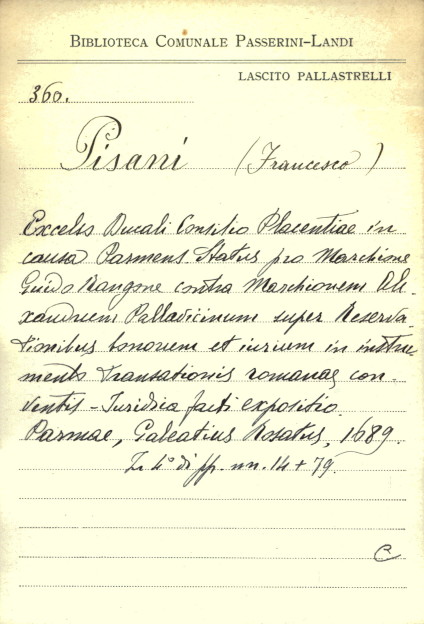 BIBLIOTECA COMUNALE PASSERINI-LANDI
LASCITO PALLASTRELLI
360.
Pisani (Francesco)
Excelso Ducali Consilio Placentiae in
causa Parmens. Status pro Marchione
Guido Rangone contra Marchionem Ale-
xandrum Palladicinum super Reserva-
tionibus bonorum et iurium in instru-
mento transationis romanae con-
ventis - Juridica facti expositio.
Parmae, Galeatius Rosatus, 1689.
In 4° di pp. nn. 14 + 79.
C